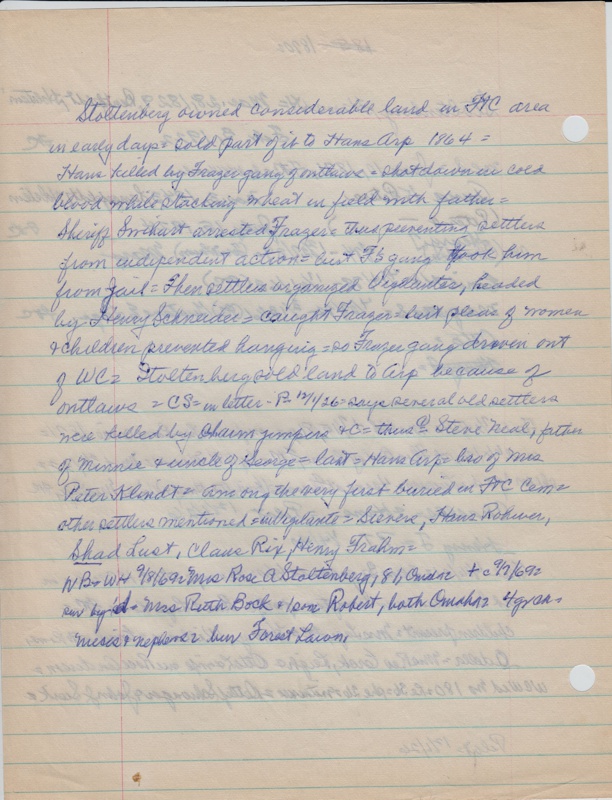 Stoltenberg owned considerable land in FTC area
in early days = sold part of it to Hans Arp 1864 =
Hans killed by Frazer gang of outlaws = shot down in cold
blood while stacking wheat in field with father =
Sheriff Swihart arrested Frazer = thus preventing settlers
from independent action = but F's gang took him
from jail = Then settlers organized Vigilantes, headed
by Henry Schneider = caught Frazer = but pleas of women
& children prevented hanging = so Frazer gang driven out
of WC = Stoltenberg sold land to Arp because of
outlaws = CS = in letter - P - 12/1/26 = says several old settlers
were killed by claim jumpers & C = thus Steve Neal, father
of Minnie & uncle of George = last = Hans Arp = bro of Mrs
Peter Klindt = among the very first buried in FTC Cem =
other settlers mentioned = Vigilante = Sievers, Hans Rohwer,
Shad Lust, Claus Rix, Henry Frahm =
NB = WH 9/8/69 = Mrs Rose A Stoltenberg, 81, Omaha + 9/7/69 =
sur by d = Mrs Ruth Bock & 1 son Robert, both Omaha = 4
nieces & nephews bur Forest Lawn